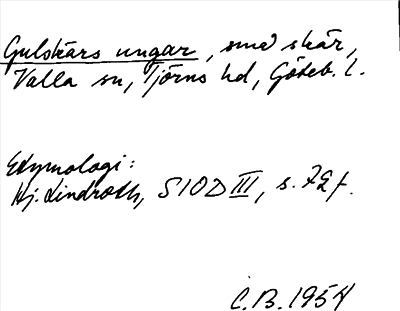 Gulskärs ungar, små skär,
Valla sn, Tjörns hd, Göteb. l.
Etymologi:
Hj. Lindroth, SIOD III, s. 72 f.
C.B. 1954